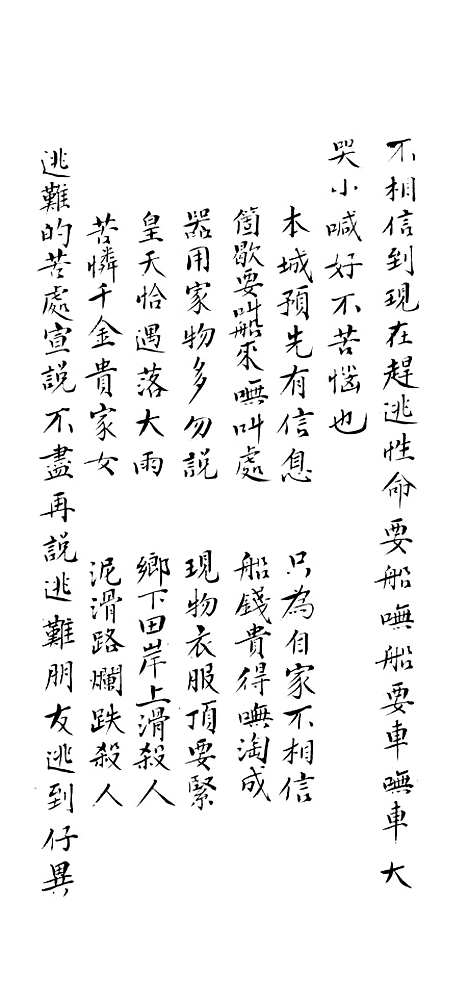 不相信到現在趕逃性命要船嘸船要車嘸車大
哭小喊好不苦惱也
本城預先有信息 只為自家不相信
箇歇要叫船來嘸叫處 船錢貴得嘸淘成
器用家物多勿説 現物衣服頂要緊
皇天恰遇落大雨 鄉下田岸上滑殺人
苦憐千金貴家女 泥滑路爛跌殺人
逃難的苦處宣説不盡再説逃難朋友逃到仔異